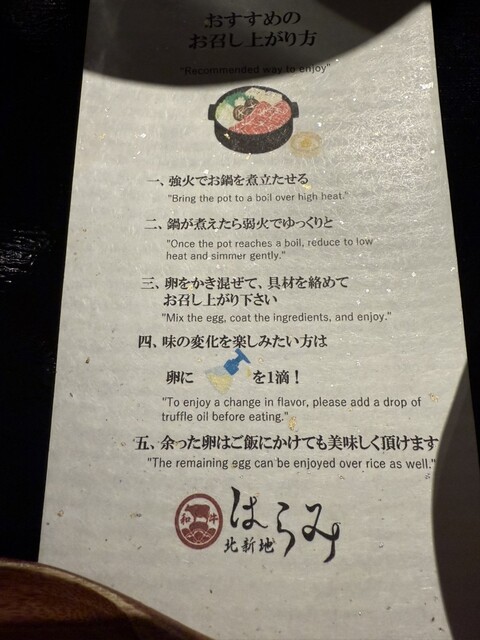 おすすめの
お召し上がり方
"Recommended way to enjoy"
一、強火でお鍋を煮立たせる
"Bring the pot to a boil over high heat."
二、鍋が煮えたら弱火でゆっくりと
"Once the pot reaches a boil, reduce to low
heat and simmer gently."
三、卵をかき混ぜて、具材を絡めて
お召し上がり下さい
"Mix the egg, coat the ingredients, and enjoy."
四、味の変化を楽しみたい方は
卵に を1滴！
"To enjoy a change in flavor, please add a drop of
truffle oil before eating."
五、余った卵はご飯にかけても美味しく頂けます
"The remaining egg can be enjoyed over rice as well."
和牛
はらみ
北新地